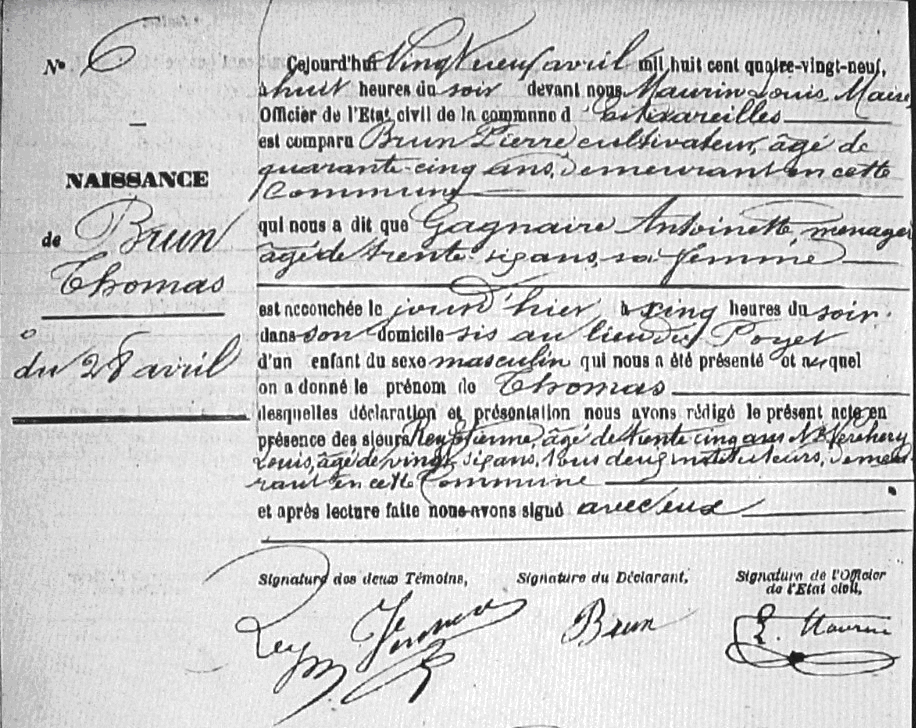 N° 6
NAISSANCE
de Brun
Thomas
du 28 avril
Cejourd'hui Vingt neuf avril mil huit cent quatre-vingt-neuf,
à huit heures du soir devant nous Maurin Louis, Maire
Officier de l'Etat civil de la commune d
est comparu Brun Pierre cultivateur, âgé de
quarante-cinq ans, demeurant en cette
Commune
qui nous a dit que Gagnaire Antoinette, ménagère
âgé de trente-six ans, sa femme
est accouchée le jourd'hier, à cinq heures du soir.
dans son domicile sis au lieu dit Poyet
d'un enfant du sexe masculin qui nous a été présenté et auquel
on a donné le prénom de Thomas
desquelles déclaration et présentation nous avons rédigé le présent acte en
présence des sieurs Rey Etienne, âgé de trente cinq ans
Louis, âgé de vingt six ans, tous deux instituteurs, demeu-
rant en cette Commune
et après lecture faite nous avons signé avec eux
Signature des deux Témoins,
Signature du Déclarant,
Signature de l'Officier
de l'Etat civil,
Rey
Brun
L. Maurin